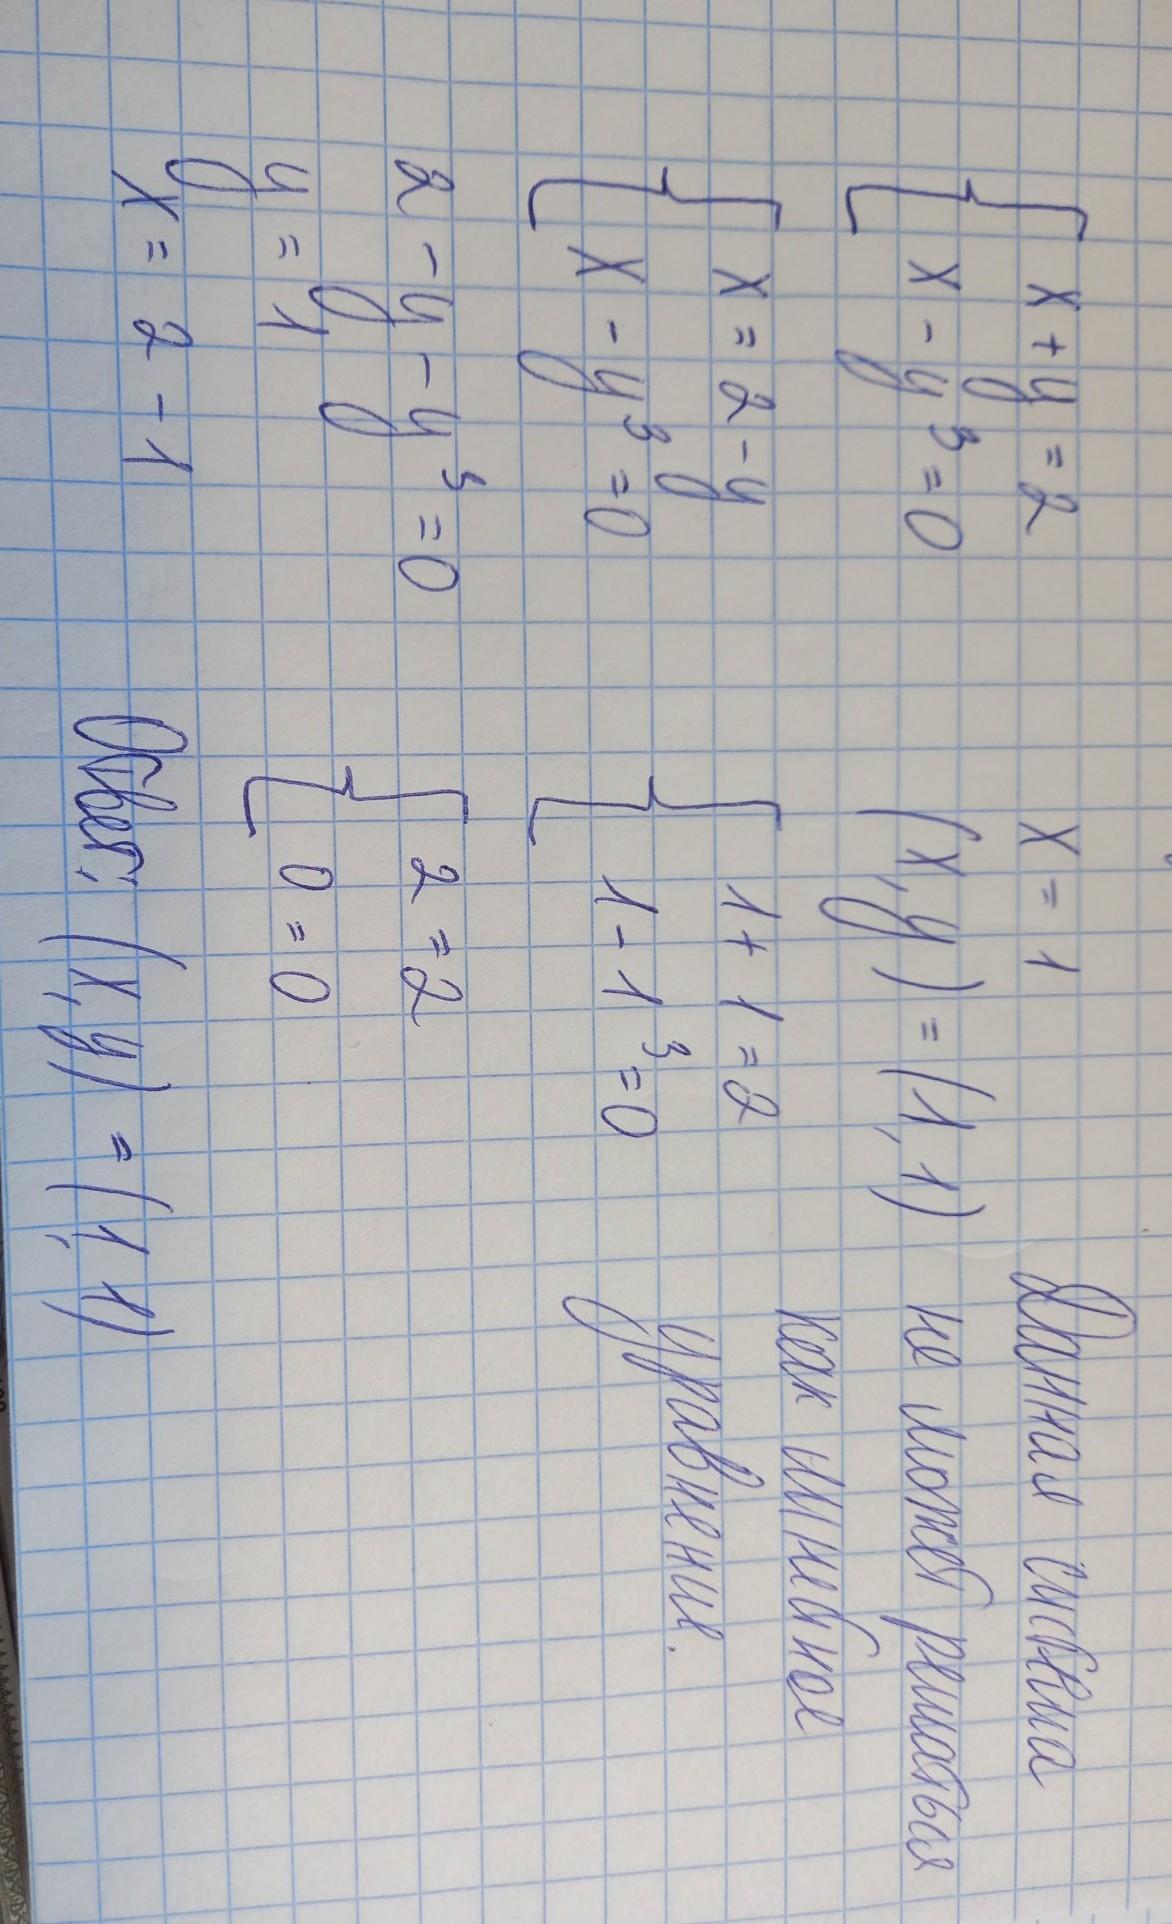 x + y = 2
x - y³ = 0
x = 2 - y
x - y³ = 0
2 - y - y³ = 0
y = 1
x = 2 - 1
x = 1
(x, y) = (1, 1)
1 + 1 = 2
1 - 1³ = 0
2 = 2
0 = 0
Ответ: (x, y) = (1, 1)
Данная система
не может решаться
как линейное
уравнение.